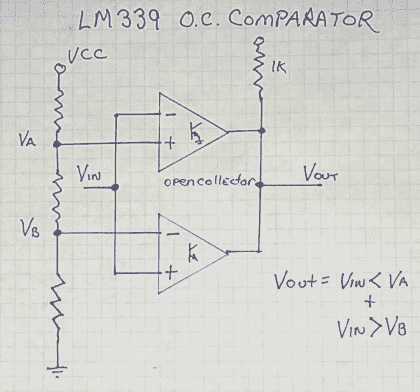 LM339 O.C. COMPARATOR
VCC
1K
VA
VIN
- 
+
opencollector
VOUT
VB
-
+
Vout = VIN < VA
+
VIN > VB